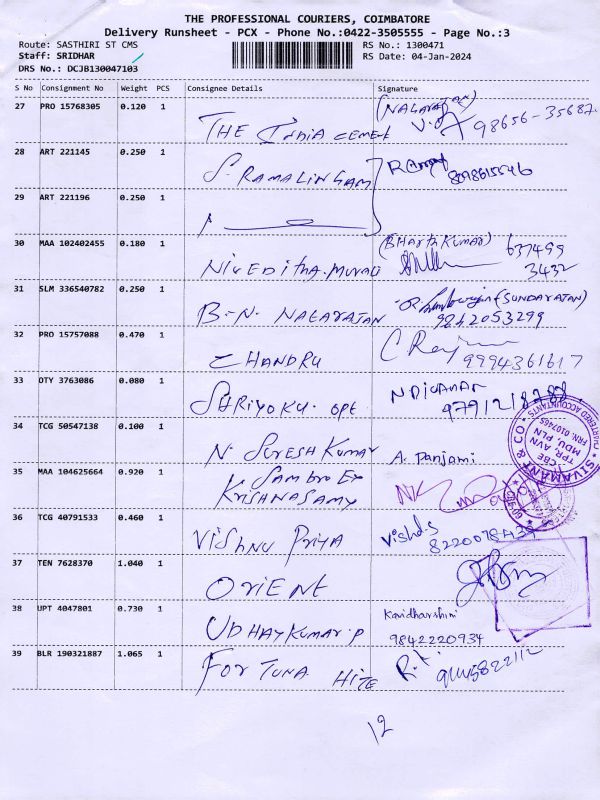 THE PROFESSIONAL COURIERS, COIMBATORE
Delivery Runsheet - PCX - Phone No.:0422-3505555 - Page No.:3
Route: SASTHIRI ST CMS
RS No.: 1300471
Staff: SRIDHAR
RS Date: 04-Jan-2024
DRS No.: DCJB130047103
S No Consignment No Weight PCS Consignee Details Signature
27 PRO 15768305 0.120 1 THE INDIA CEMENT (NAGARAJAN) 98656-35687
28 ART 221145 0.250 1 S. RAMALINGAM
29 ART 221196 0.250 1
30 MAA 102402455 0.180 1 NIVEDITHA.MURALI (BHARTH KUMAR) 637499
3432
31 SLM 336540782 0.250 1 B.N. NAGARAJAN (SUNDARAJAN)
9842053299
32 PRO 15757088 0.470 1 CHANDRU 9994361617
33 OTY 3763086 0.080 1 SHRIYOKU. OPT
34 TCG 50547138 0.100 1 N. SURESH KUMAR A. Panjami
35 MAA 104625664 0.920 1 KRISHNASAMY
36 TCG 40791533 0.460 1 VISHNU PRIYA
37 TEN 7628370 1.040 1 ORIENT
38 UPT 4047801 0.730 1 UDHAYKUMAR.P Kavidharshini
9842220934
39 BLR 190321887 1.065 1 FORTUNA HITE R.K. 9445822112
SIVAMANT & CO
CHARTERED ACCOUNTANTS
FRN. 010746S
MDU, PLN
TPR, AVN
CBE
12